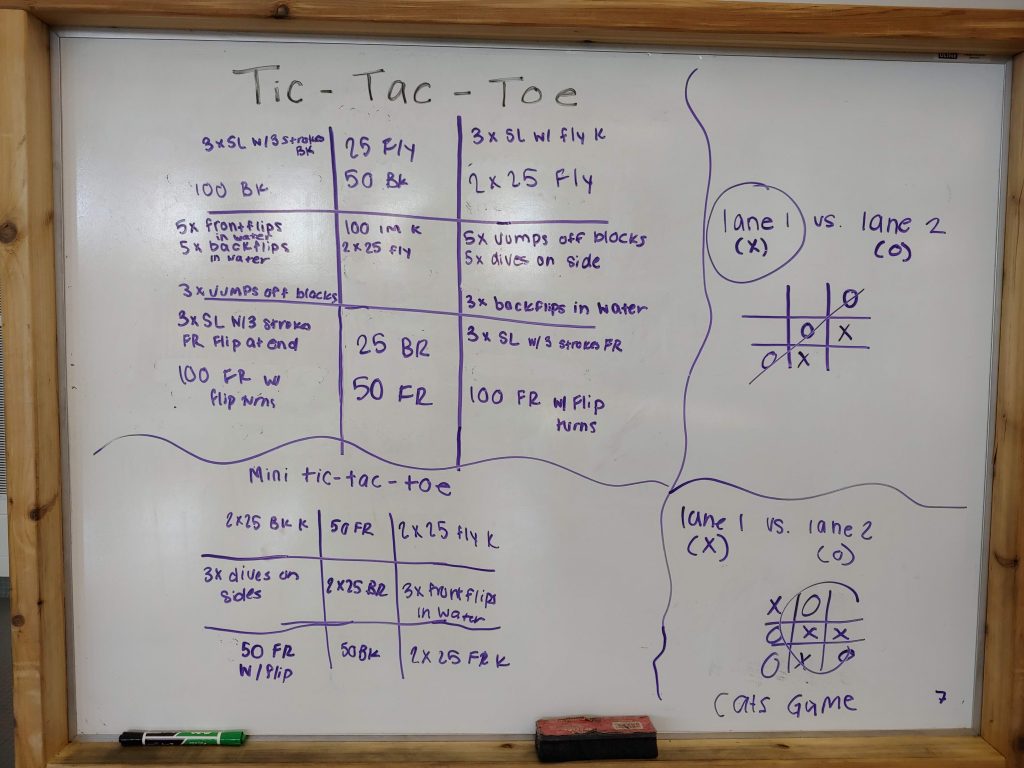 Tic - Tac - Toe
3xSL W/3 strokes BK
100 BK
25 Fly
50 BK
3 x SL w/ fly K
2 x 25 Fly
5x frontflips
in water
5x backflips
in water
3 x Jumps off blocks
100 IM K
2x25 fly
5x Jumps off blocks
5x dives on side
3x backflips in water
3xSL W/3 stroke
FR flip at end
100 FR w/
flip turns
25 BR
50 FR
3 x SL w/3 strokes FR
100 FR w/ flip
turns
Mini tic-tac-toe
2x25 BK K
50 FR
2x25 fly K
3x dives on
sides
2x25 BR
3x frontflips
in water
50 FR
W/flip
50BK
2x25 FR K
lane 1 vs. lane 2
(X) (O)
O
O X
O X
lane 1 vs. lane 2
(X) (O)
X O
O X X
O X O
Cats Game
7